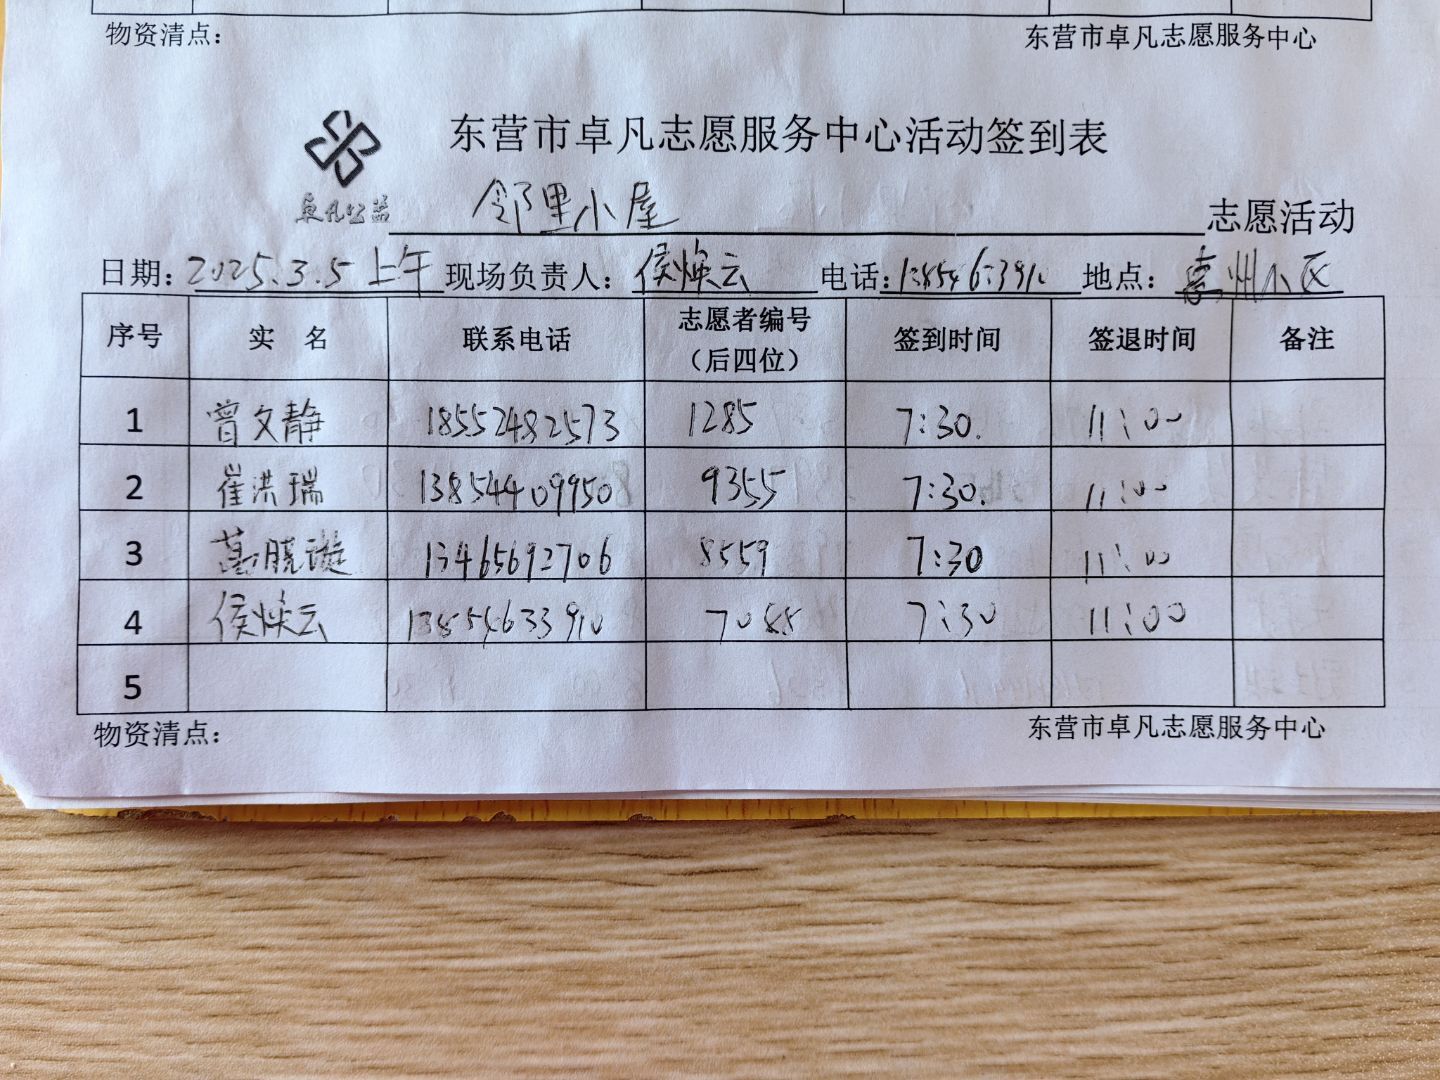 物资清点： 东营市卓凡志愿服务中心
东营市卓凡志愿服务中心活动签到表
卓凡公益
邻里小屋 志愿活动
日期：2025.3.5 上午 现场负责人：侯焕云 电话：13854633910 地点：州小区
序号 实 名 联系电话 志愿者编号（后四位） 签到时间 签退时间 备注
1 曾文静 18552482573 1285 7:30. 11:00
2 崔洪瑞 13854409950 9355 7:30. 11:00
3 葛晓璇 13465692706 8559 7:30 11:00
4 侯焕云 13854633910 7088 7:30 11:00
5
物资清点： 东营市卓凡志愿服务中心